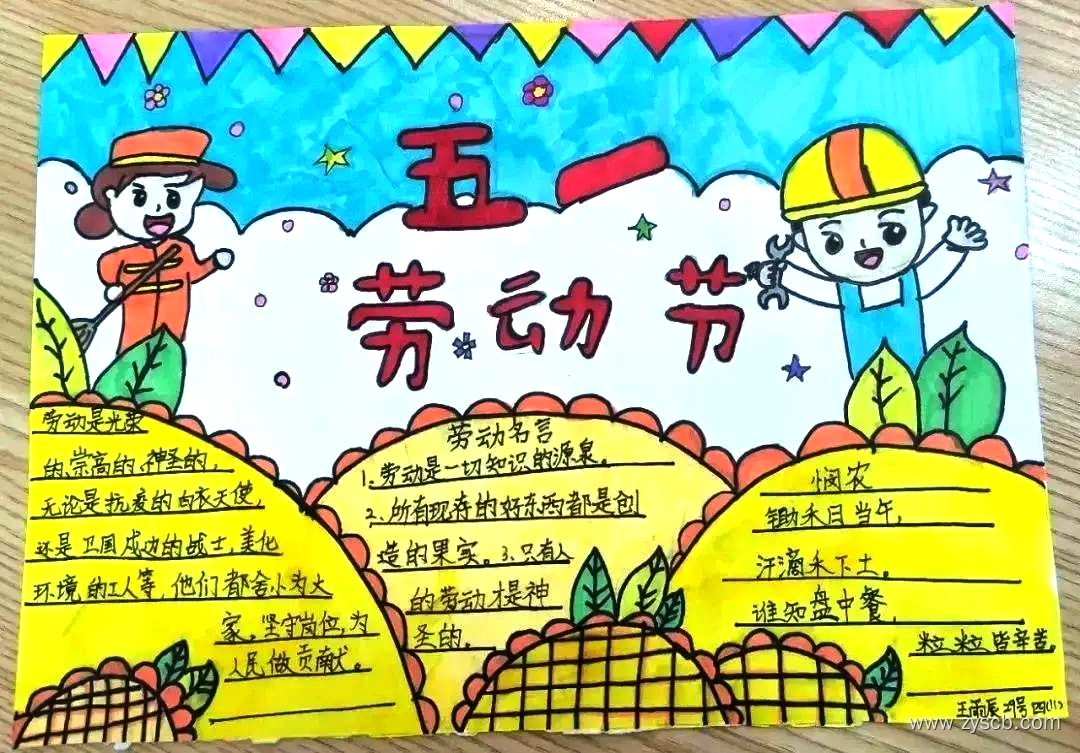 五一
劳动节
劳动是光荣
的、崇高的、神圣的,
无论是抗疫的白衣天使,
还是卫国戍边的战士,美化
环境的工人等,他们都舍小为大
家,坚守岗位,为
人民做贡献。
劳动名言
1、劳动是一切知识的源泉。
2、所有现存的好东西都是创
造的果实。3、只有人
的劳动才是神
圣的。
悯农
锄禾日当午,
汗滴禾下土。
谁知盘中餐,
粒粒皆辛苦。
王雨辰 29号 四(11)
www.zyscb.com